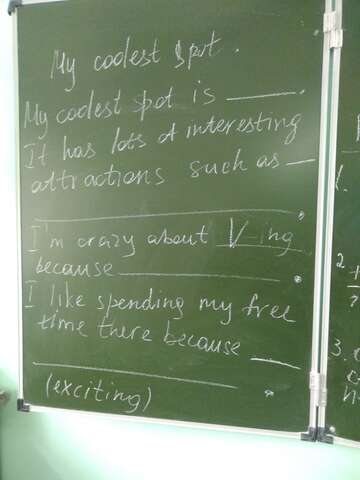 My coolest spot.
My coolest spot is ____.
It has lots of interesting
attractions such as __
____________.
I'm crazy about V-ing
because ____________.
I like spending my free
time there because ___
____________.
(exciting)
1.
2.
3.